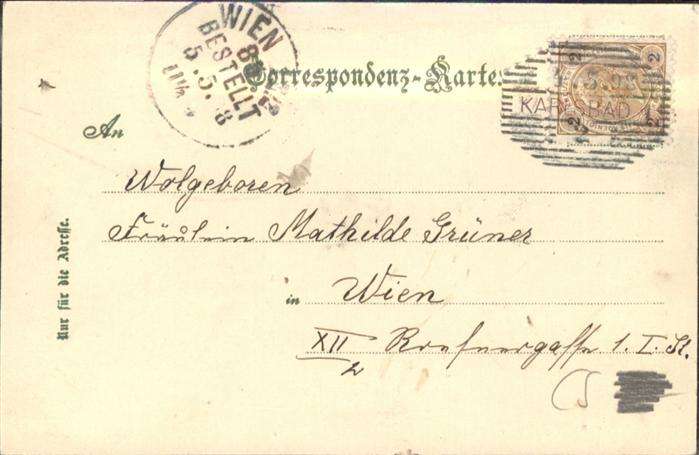 WIEN
BESTELLT
5.5.
8
Correspondenz-Karte.
2 2
KARLSBAD
2 2
An
Wolgeboren
Fräulein Mathilde Grüner
in Wien
XII/2 1. I. St.
Nur für die Adresse.